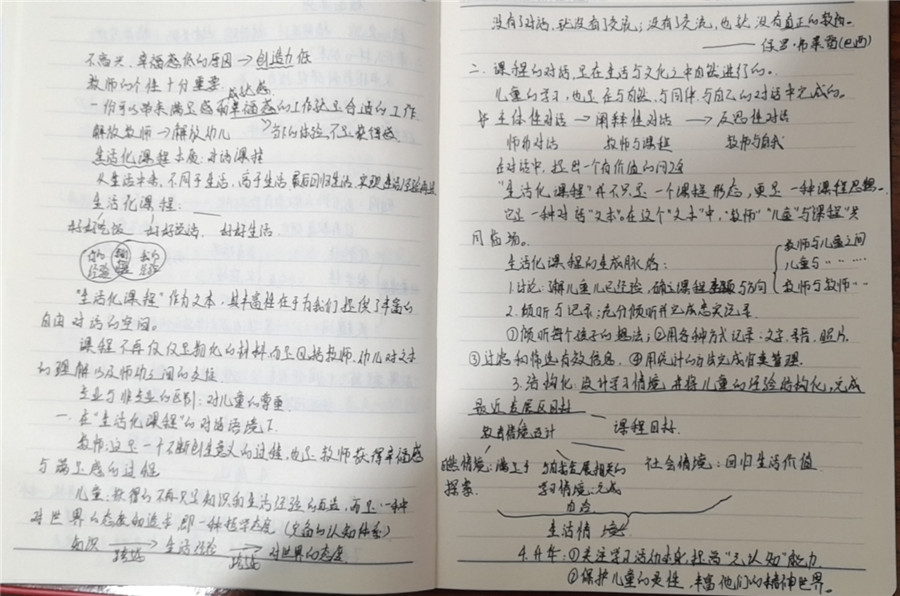 不高兴、幸福感低的原因→创造力低
教师的个性十分重要 成就感
一份可以带来满足感和幸福感的工作就是合适的工作
解放教师→解放幼儿 获得感
生活化课程 对话课程
从生活中来,不同于生活,高于生活,最后回归生活,实现生活
生活化课程:
好好吃饭 好好说话、好好生活
你的经验 我的经验
"生活化课程"作为文本,其丰富性在于为我们提供了丰富的
自由对话的空间。
课程不再仅仅是物化的材料而是包括教师、幼儿对文本
的理解以及师幼之间的交往
专业与非专业的区别:对儿童的尊重
一、在"生活化课程"的对话语境下
教师:这是一个不断创生意义的过程,也是教师获得幸福感
与满足感的过程
儿童:获得的不再只是知识和生活经验的,而是一种
对世界的态度的 即一种哲学态度(全面的认知体系)
知识 → 生活经验 → 对世界的态度
没有了对话,就没有了交流;没有了交流,也就没有真正的教育。
——保罗·弗莱雷(巴西)
二、课程的对话是在生活与文化之中自然进行的。
儿童的学习,也是在与自然、与同伴、与自己的对话中完成的。
主体性对话 → 阐释性对话 → 反思性对话
师幼对话 教师与课程 教师与自我
在对话中,提出一个有价值的问题
"生活化课程"并不只是一个课程形态,更是一种课程思想。
它是一种对话"文本"。在这个"文本"中,"教师""儿童"与课程"共
同在场。
教师与儿童之间
生活化课程的生成脉络: 儿童与 〃 〃
1.讨论:聊儿童儿已经验,确定课程主题与方向 教师与教师 〃
2.倾听与记录:充分倾听并完成真实记录
①倾听每个孩子的想法;②用各种方式记录:文字、录音、照片,
③过滤和筛选有效信息,④用统计的方法完成管理。
3.结构化:设计学习情境,并将儿童的经验结构化,完成
最近发展区目标
教育情境设计 课程目标
自然情境:满足于 与自我发展相关的 社会情境:回归生活价值
探索 学习情境:完成
内容
生活情境
4.升华:①关注学习活动本身,提高"元认知"能力
②保护儿童的灵性,丰富他们的精神世界。